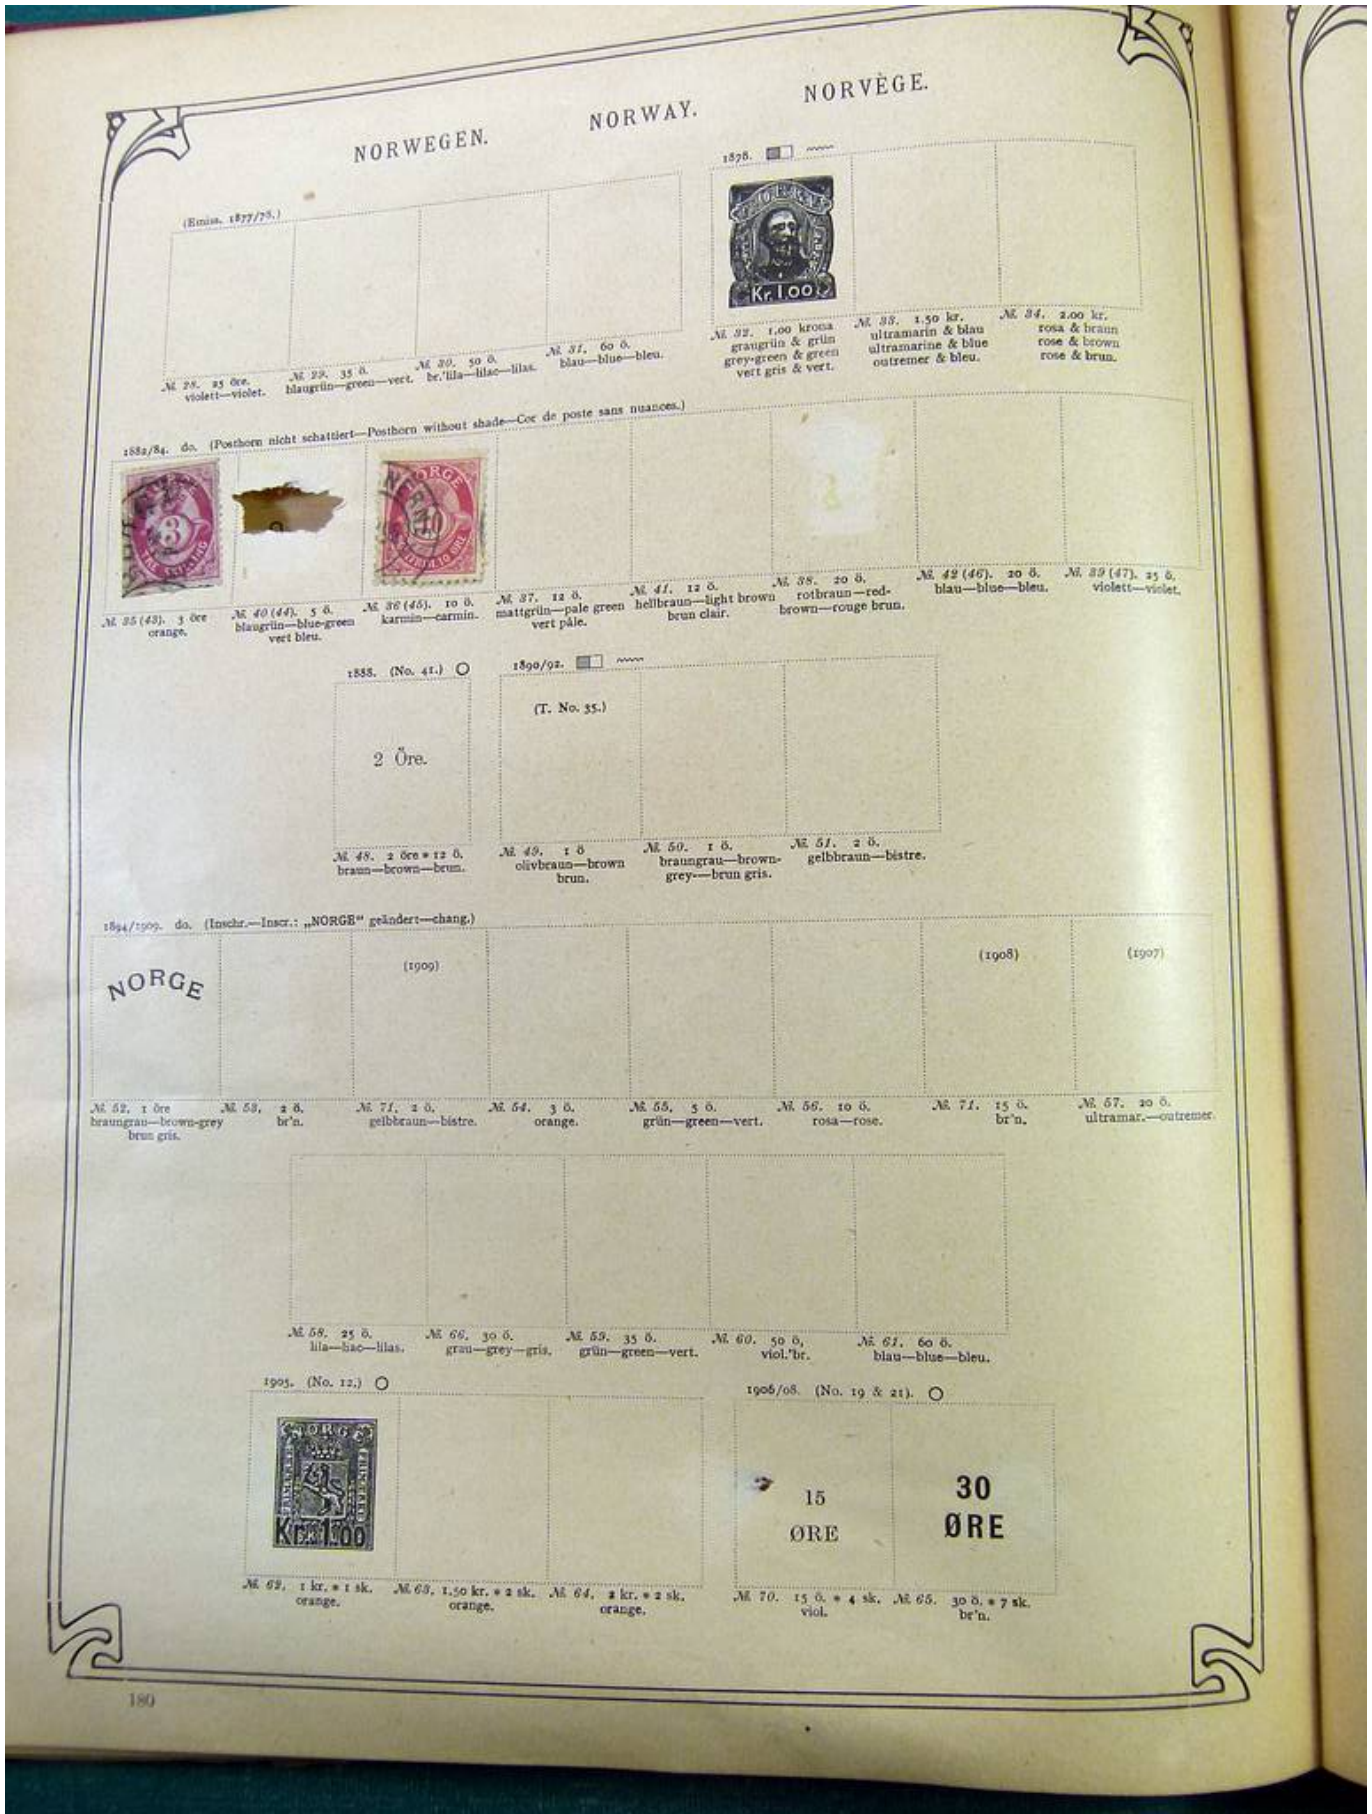 NORWEGEN.
NORWAY.
NORVÈGE.
(Emiss. 1877/78.)
1878.
Kr. 1.00
№. 28. 25 öre.
violett—violet.
№. 29. 35 ö.
blaugrün—green—vert.
№. 30. 50 ö.
br.'lila—lilac—lilas.
№. 31. 60 ö.
blau—blue—bleu.
№. 32. 1.00 krona
graugrün & grün
grey-green & green
vert gris & vert.
№. 33. 1.50 kr.
ultramarin & blau
ultramarine & blue
outremer & bleu.
№. 34. 2.00 kr.
rosa & braun
rose & brown
rose & brun.
1882/84. do. (Posthorn nicht schattiert—Posthorn without shade—Cor de poste sans nuances.)
3
NORGE
10
№. 35 (43). 3 öre
orange.
№. 40 (44). 5 ö.
blaugrün—blue-green
vert bleu.
№. 36 (45). 10 ö.
karmin—carmin.
№. 37. 12 ö.
mattgrün—pale green
vert pâle.
№. 41. 12 ö.
hellbraun—light brown
brun clair.
№. 38. 20 ö.
rotbraun—red-
brown—rouge brun.
№. 42 (46). 20 ö.
blau—blue—bleu.
№. 39 (47). 25 ö.
violett—violet.
1888. (No. 41.)
2 Öre.
№. 48. 2 öre * 12 ö.
braun—brown—brun.
1890/92.
(T. No. 35.)
№. 49. 1 ö
olivbraun—brown
brun.
№. 50. 1 ö.
braungrau—brown-
grey—brun gris.
№. 51. 2 ö.
gelbbraun—bistre.
1894/1909. do. (Inschr.—Inscr.: „NORGE" geändert—chang.)
NORGE
(1909)
(1908)
(1907)
№. 52. 1 öre
braungrau—brown-grey
brun gris.
№. 53. 2 ö.
br'n.
№. 71. 2 ö.
gelbbraun—bistre.
№. 54. 3 ö.
orange.
№. 55. 5 ö.
grün—green—vert.
№. 56. 10 ö.
rosa—rose.
№. 71. 15 ö.
br'n.
№. 57. 20 ö.
ultramar.—outremer.
№. 58. 25 ö.
lila—liac—lilas.
№. 66. 30 ö.
grau—grey—gris.
№. 59. 35 ö.
grün—green—vert.
№. 60. 50 ö,
viol.'br.
№. 61. 60 ö.
blau—blue—bleu.
1905. (No. 12.)
NORGE
Kr. 1.00
№. 62. 1 kr. * 1 sk.
orange.
№. 63. 1.50 kr. * 2 sk.
orange.
№. 64. 2 kr. * 2 sk.
orange.
1906/08. (No. 19 & 21).
15
ØRE
30
ØRE
№. 70. 15 ö. * 4 sk.
viol.
№. 65. 30 ö. * 7 sk.
br'n.
180